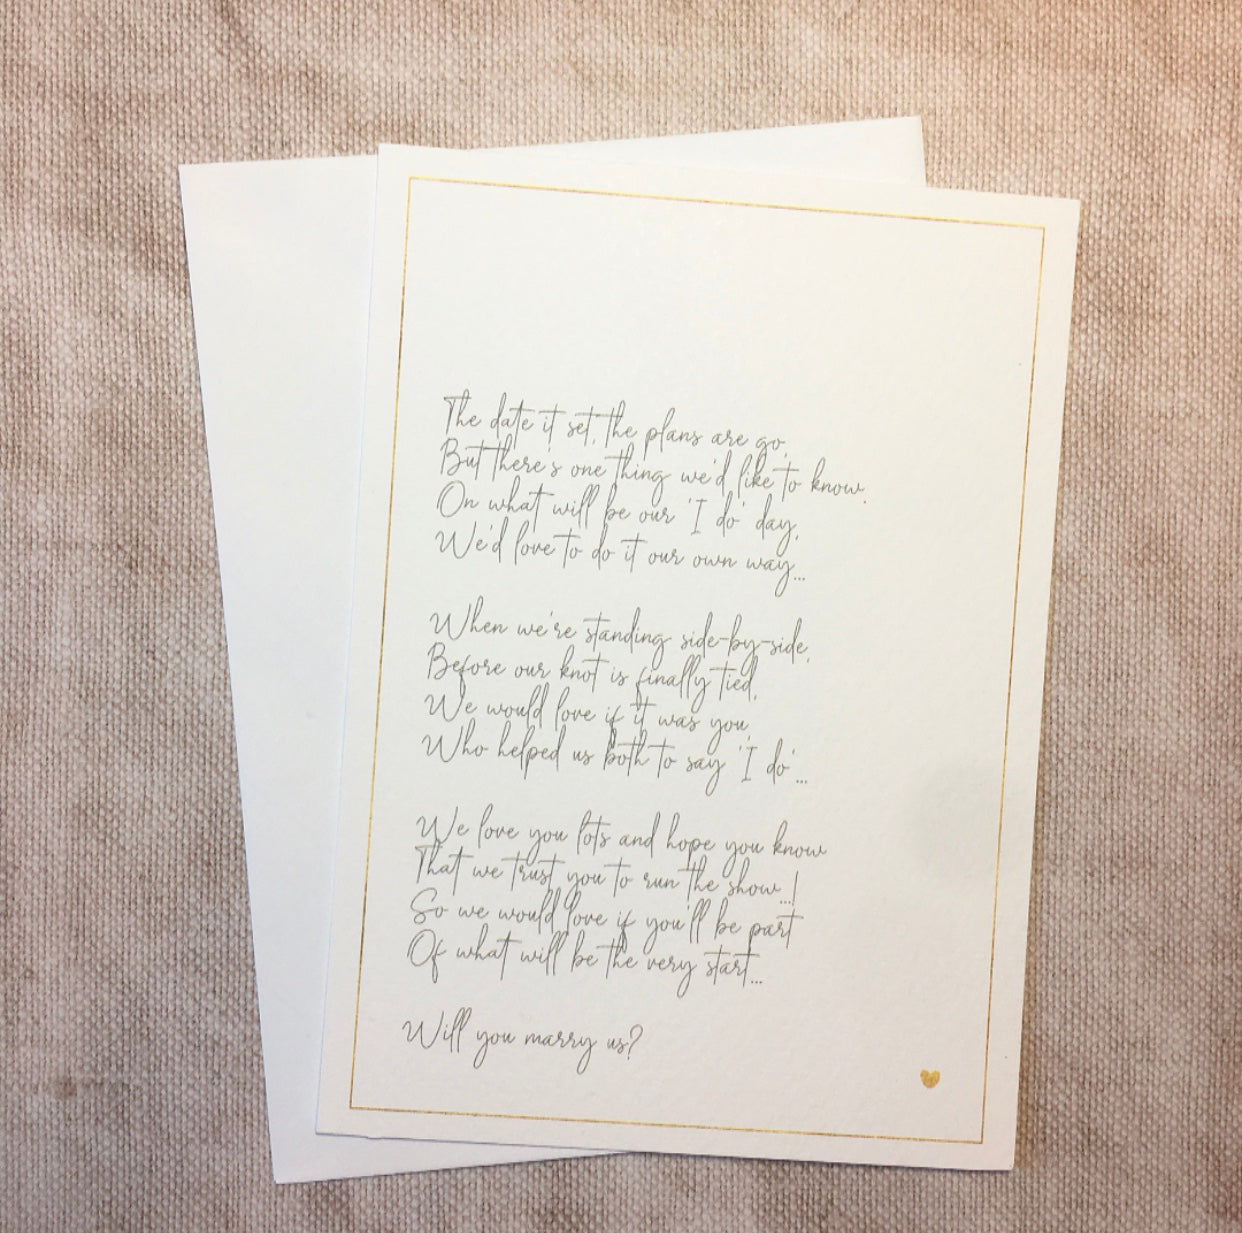 The date it set, the plans are go,
But there's one thing we'd like to know.
On what will be our 'I do' day,
We'd love to do it our own way...
When we're standing side-by-side,
Before our knot is finally tied,
We would love if it was you,
Who helped us both to say 'I do'...
We love you lots and hope you know
That we trust you to run the show...!
So we would love if you'll be part
Of what will be the very start...
Will you marry us?